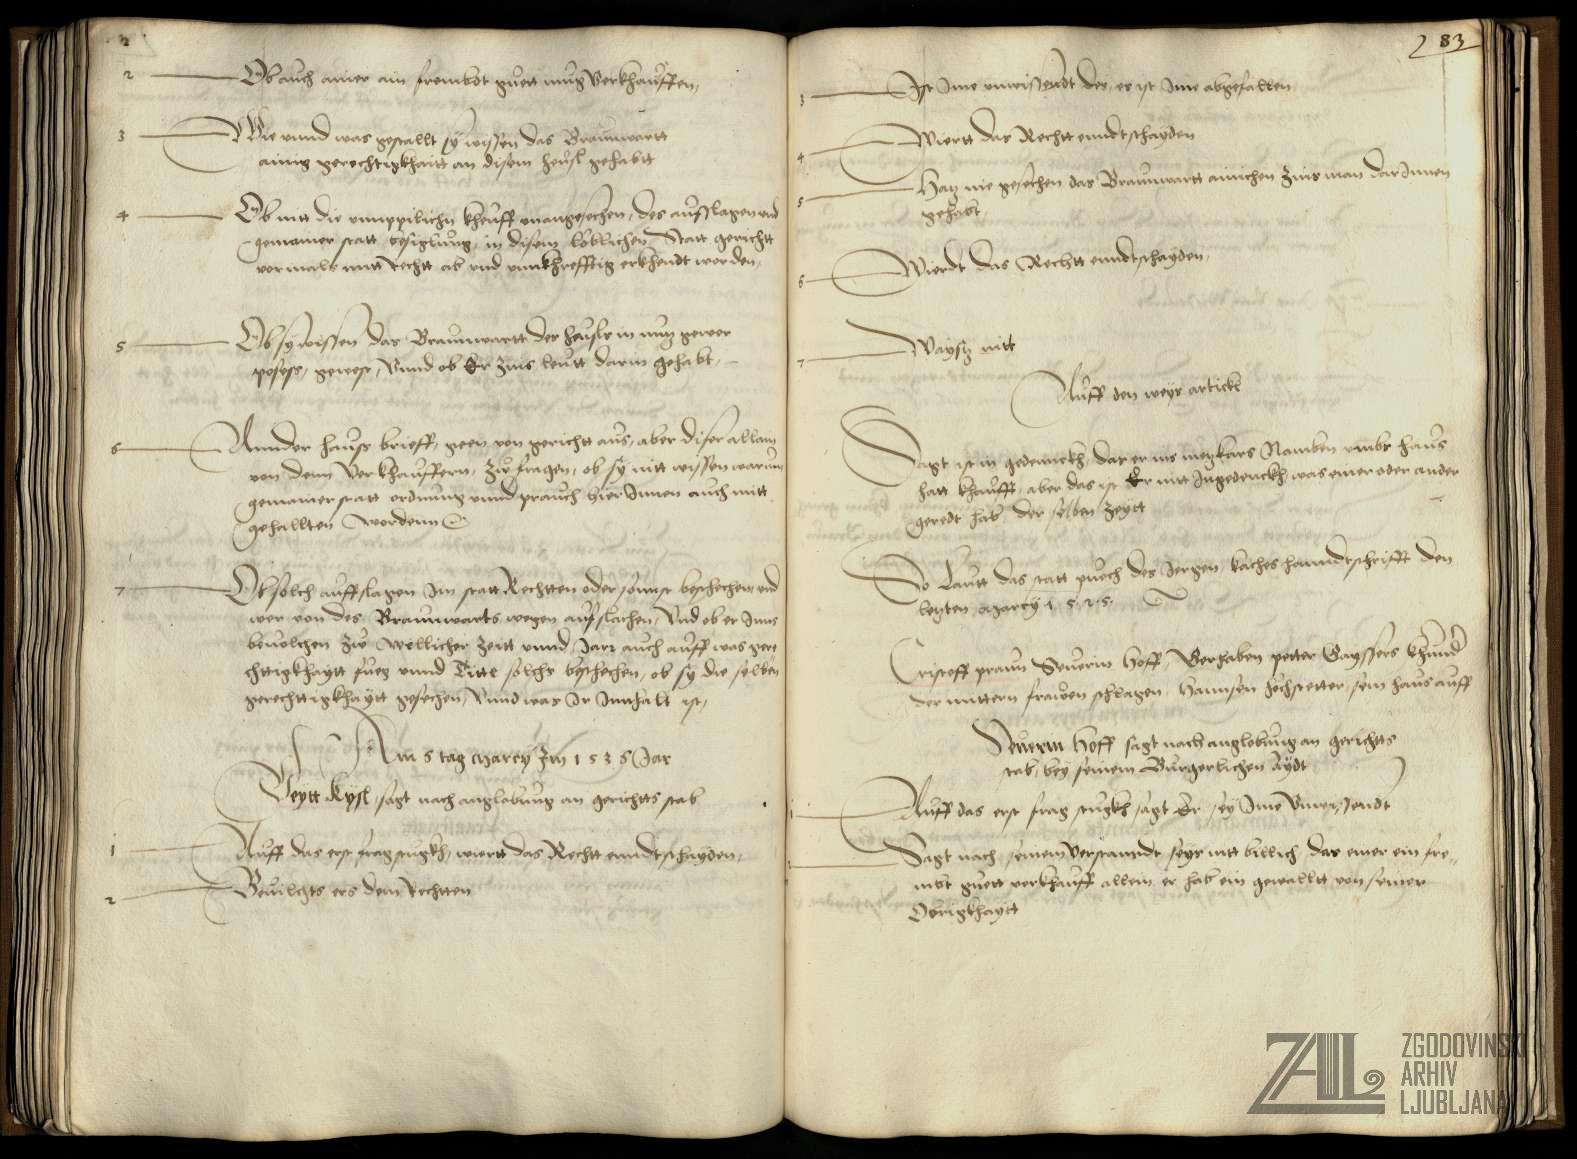 2 Ob auch ainer ain frembdt guett mug verkhauffen,
3 Wie unnd was gestallt sy wissen das Braunwartt
ainig gerechtigkhaitt an disem heusl gehabtt
4 Ob nitt die kheuff unangesechen, des aufslagen und
gemainer statt besiglung, in disem loblichen Statt gerichtt
vormals mitt Rechtt ab und unkhrefftig erkhendt worden,
5 Ob sy wissen das Braunwartt der heuslr in nutz gewer
posess, gewest, Unnd ob Er zins leutt darin gehabt,
6 Annder hauss brieff, geen von gerichtt aus, aber diser allain
von dem Verkhauffern, zw fragen, ob sy nitt wissen warum
gemainer statt ordnung unnd prauch hier Innen auch nitt
gehallten wordenn
7 Ob solch auffslagen Im statt Rechtten oder sounst beschechen, und
wer von des Braunwarts wegen aufslachen, Und ob er Ims
bevolchen zw wellicher zeitt unnd Jarr auch auff was gere
chttigkhaytt fueg unnd Tittl solchs beschechen, ob sy die selben
gerechttigkhaytt gesechen, Unnd was Ir Innhalt ist,
Am 5 tag Marcy Im 1 5 3 6 Jar
Veytt Kysl, sagt nach anglobung an gerichtts stab
1 Auff das erst fragstugkh, wiertt das Rechtt enndtschayden,
2 Bevilchts ers dem Rechtten
83
3 Ist Ime unwissendt der, er ist Ime abgefallen
4 Wiertt das Rechtt enndtschayden
5 Hatt nie gesechen das Braunwartt ainichen zins man darInnen
gehabt,
6 Wierdt das Rechtt enndtschayden,
7 Waysz nitt
Auff den weys artickl
Sagt ist in gedennckh, das er ins Namben umbs haus
hatt khaufft, aber das ist Er nitt Ingedenckh, was einer oder ander
geredt hab der selben zeytt
So Lautt das statt puech des Jergen handtschrifft den
lezten Marcy 1. 5. 2. 5.
Cristoff praun Severin hoff, Gerhaben petter Gayssers khind
der mittern frawen schlagen, Hannsen hochstetter, sein haus auff
Severin Hoff sagt nach anglobung an gerichtts
stab, bey seinem Burgerlichen Aydt
1 Auff das erst frag stugkh sagt Er, sey Ime Unwissendt
2 Sagt nach seinem Verstanndt, seys nitt billich, das einer ein fre,,
mbt guett verkhauff allein er hab ein gewalltt von seiner
Obrigkhaytt
ZAL
ZGODOVINSKI
ARHIV
LJUBLJANA